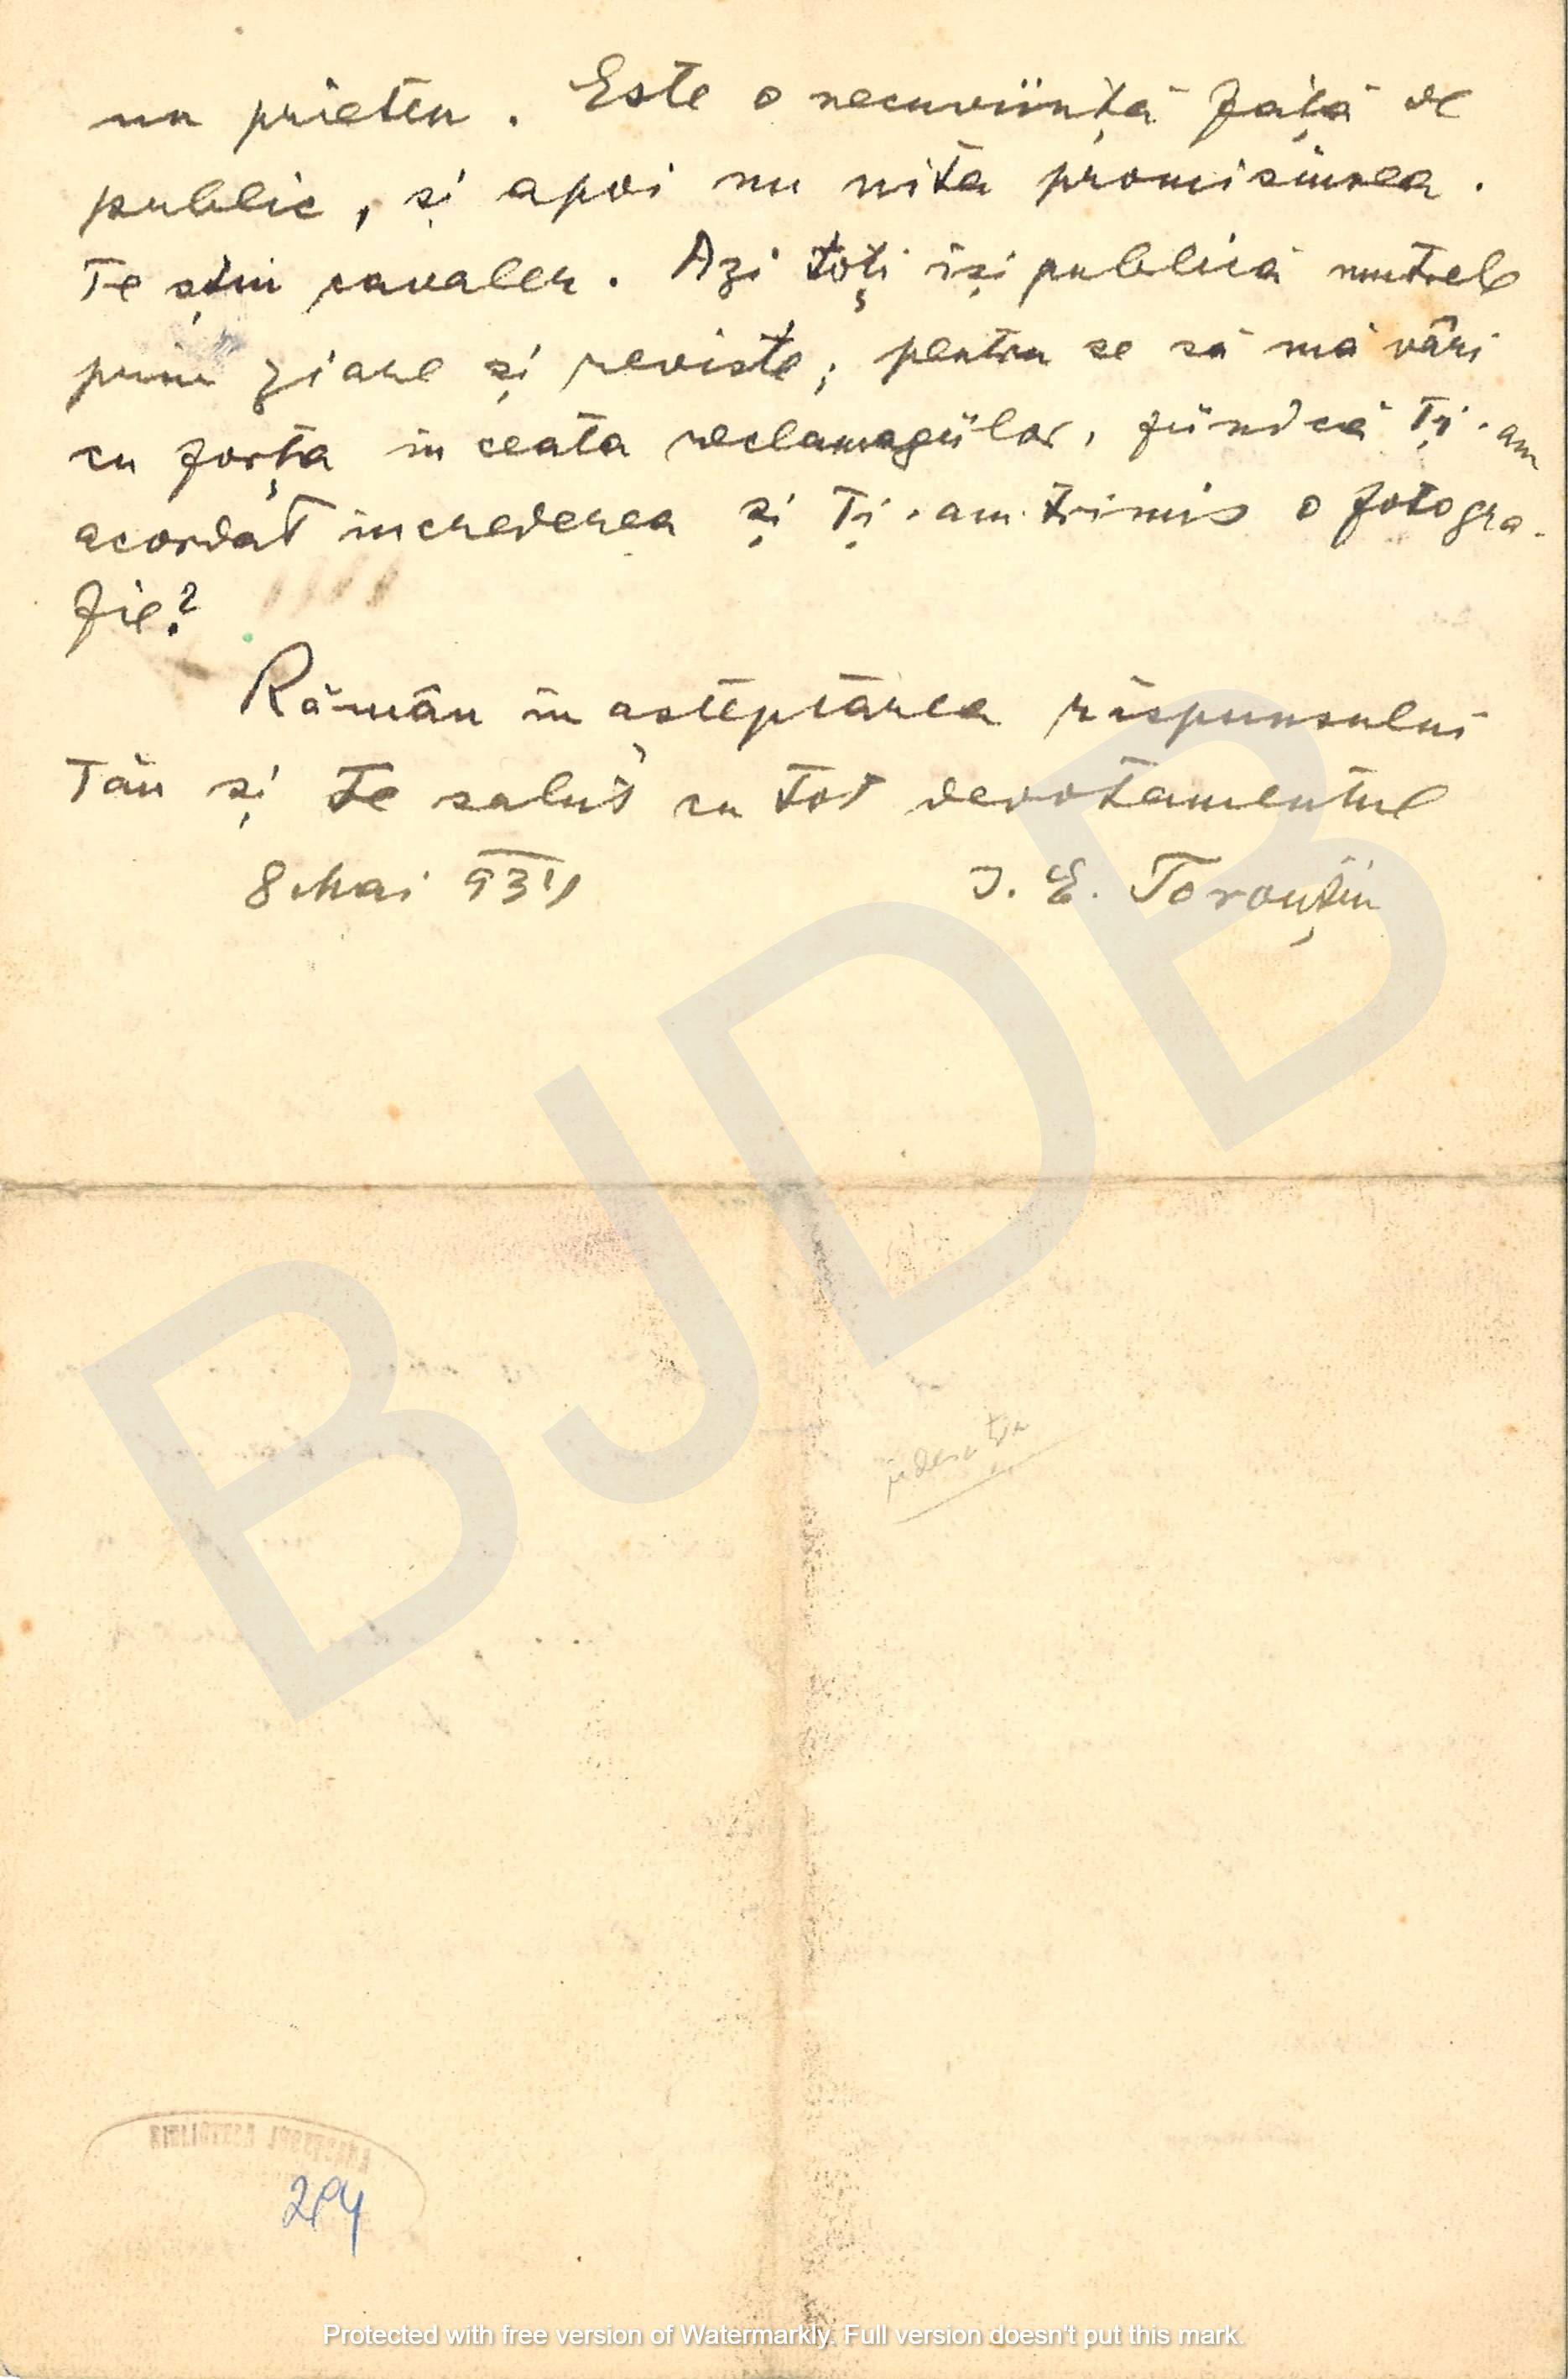 un prieten. Este o necuviință față de
public, și apoi nu uita promisiunea.
Te știu cavaler. Azi toți își publică mutrele
prin ziare și reviste; pentru ce să mă vâri
cu forța in ceata reclamagiilor, fiindcă Ți-am
acordat increderea și Ți-am trimis o fotogra-
fie?
Rămân in așteptarea răspunsului
Tău și Te salut cu tot devotamentul
8 Mai 93
I. E. Torouțiu
BJDB
Protected with free version of Watermarkly. Full version doesn't put this mark.